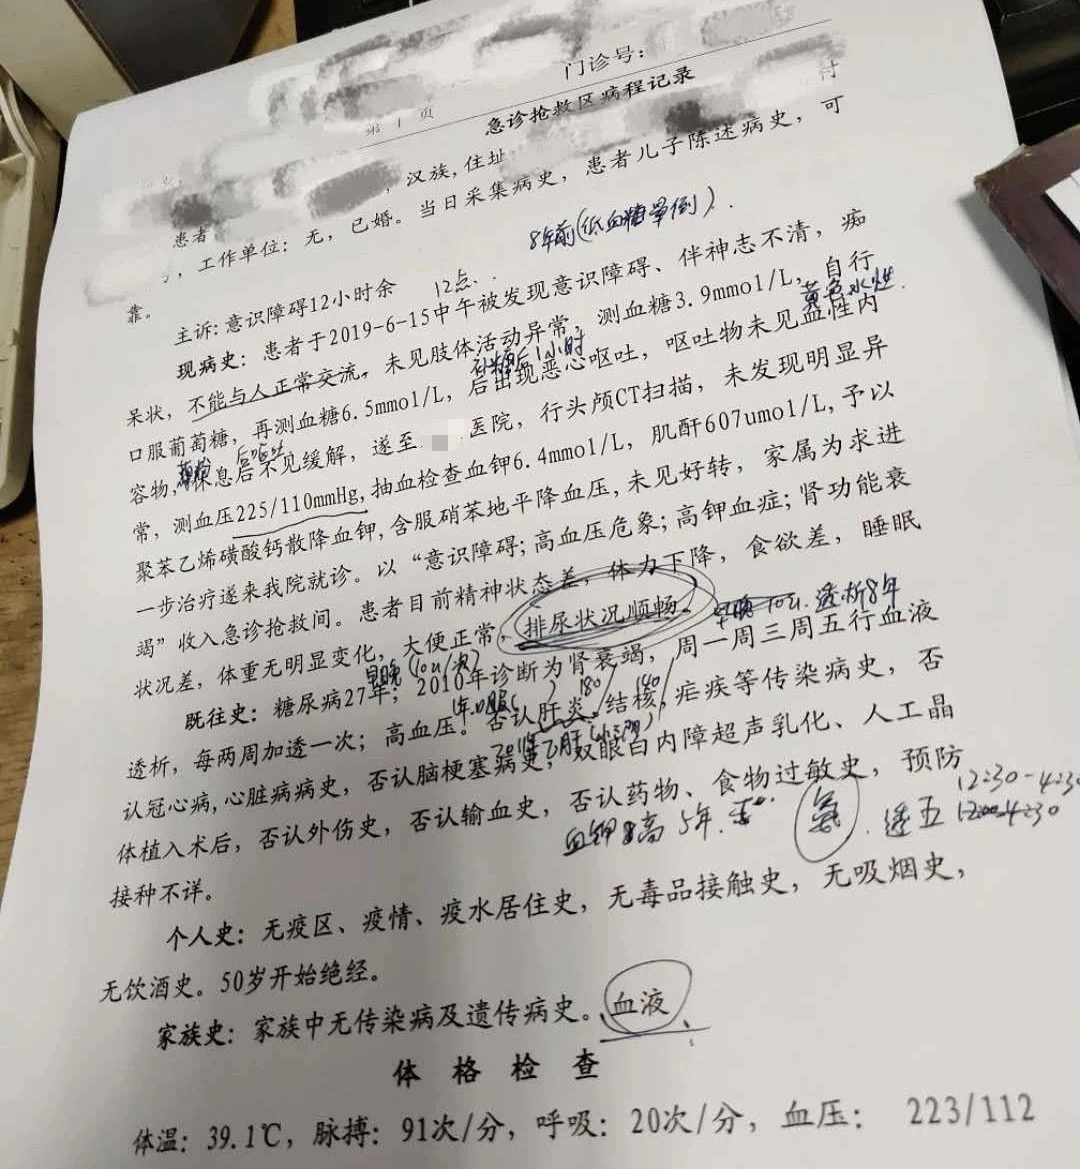 门诊号：
第 1 页
急诊抢救区病程记录
患者
，汉族，住址
，工作单位：无，已婚。当日采集病史，患者儿子陈述病史，可
靠。
8年前(低血糖晕倒).
主诉：意识障碍12小时余
12点.
现病史：患者于2019-6-15中午被发现意识障碍、伴神志不清，痴
呆状，不能与人正常交流，未见肢体活动异常，测血糖3.9mmol/L，自行
补糖后1小时
黄色水性
口服葡萄糖，再测血糖6.5mmol/L，后出现恶心呕吐，呕吐物未见血性内
后呕吐
容物，休息后不见缓解，遂至 医院，行头颅CT扫描，未发现明显异
常，测血压225/110mmHg，抽血检查血钾6.4mmol/L，肌酐607umol/L，予以
聚苯乙烯磺酸钙散降血钾，含服硝苯地平降血压，未见好转，家属为求进
一步治疗遂来我院就诊。以“意识障碍；高血压危象；高钾血症；肾功能衰
竭”收入急诊抢救间。患者目前精神状态差，体力下降，食欲差，睡眠
状况差，体重无明显变化，大便正常，排尿状况顺畅。
早晚 10u. 透析8年
早晚(10u/次)
既往史：糖尿病27年；2010年诊断为肾衰竭，周一周三周五行血液
1年口服( ) 180/ 140/
透析，每两周加透一次；高血压。否认肝炎，结核，疟疾等传染病史，否
乙肝(小三阳)
认冠心病，心脏病病史，否认脑梗塞病史，双眼白内障超声乳化、人工晶
体植入术后，否认外伤史，否认输血史，否认药物、食物过敏史，预防
血钾高 5年. 氨. 透五 12:30-4:30
12:00-4:30
接种不详。
个人史：无疫区、疫情、疫水居住史，无毒品接触史，无吸烟史，
无饮酒史。50岁开始绝经。
家族史：家族中无传染病及遗传病史。血液
体 格 检 查
体温：39.1℃，脉搏：91次/分，呼吸：20次/分，血压： 223/112